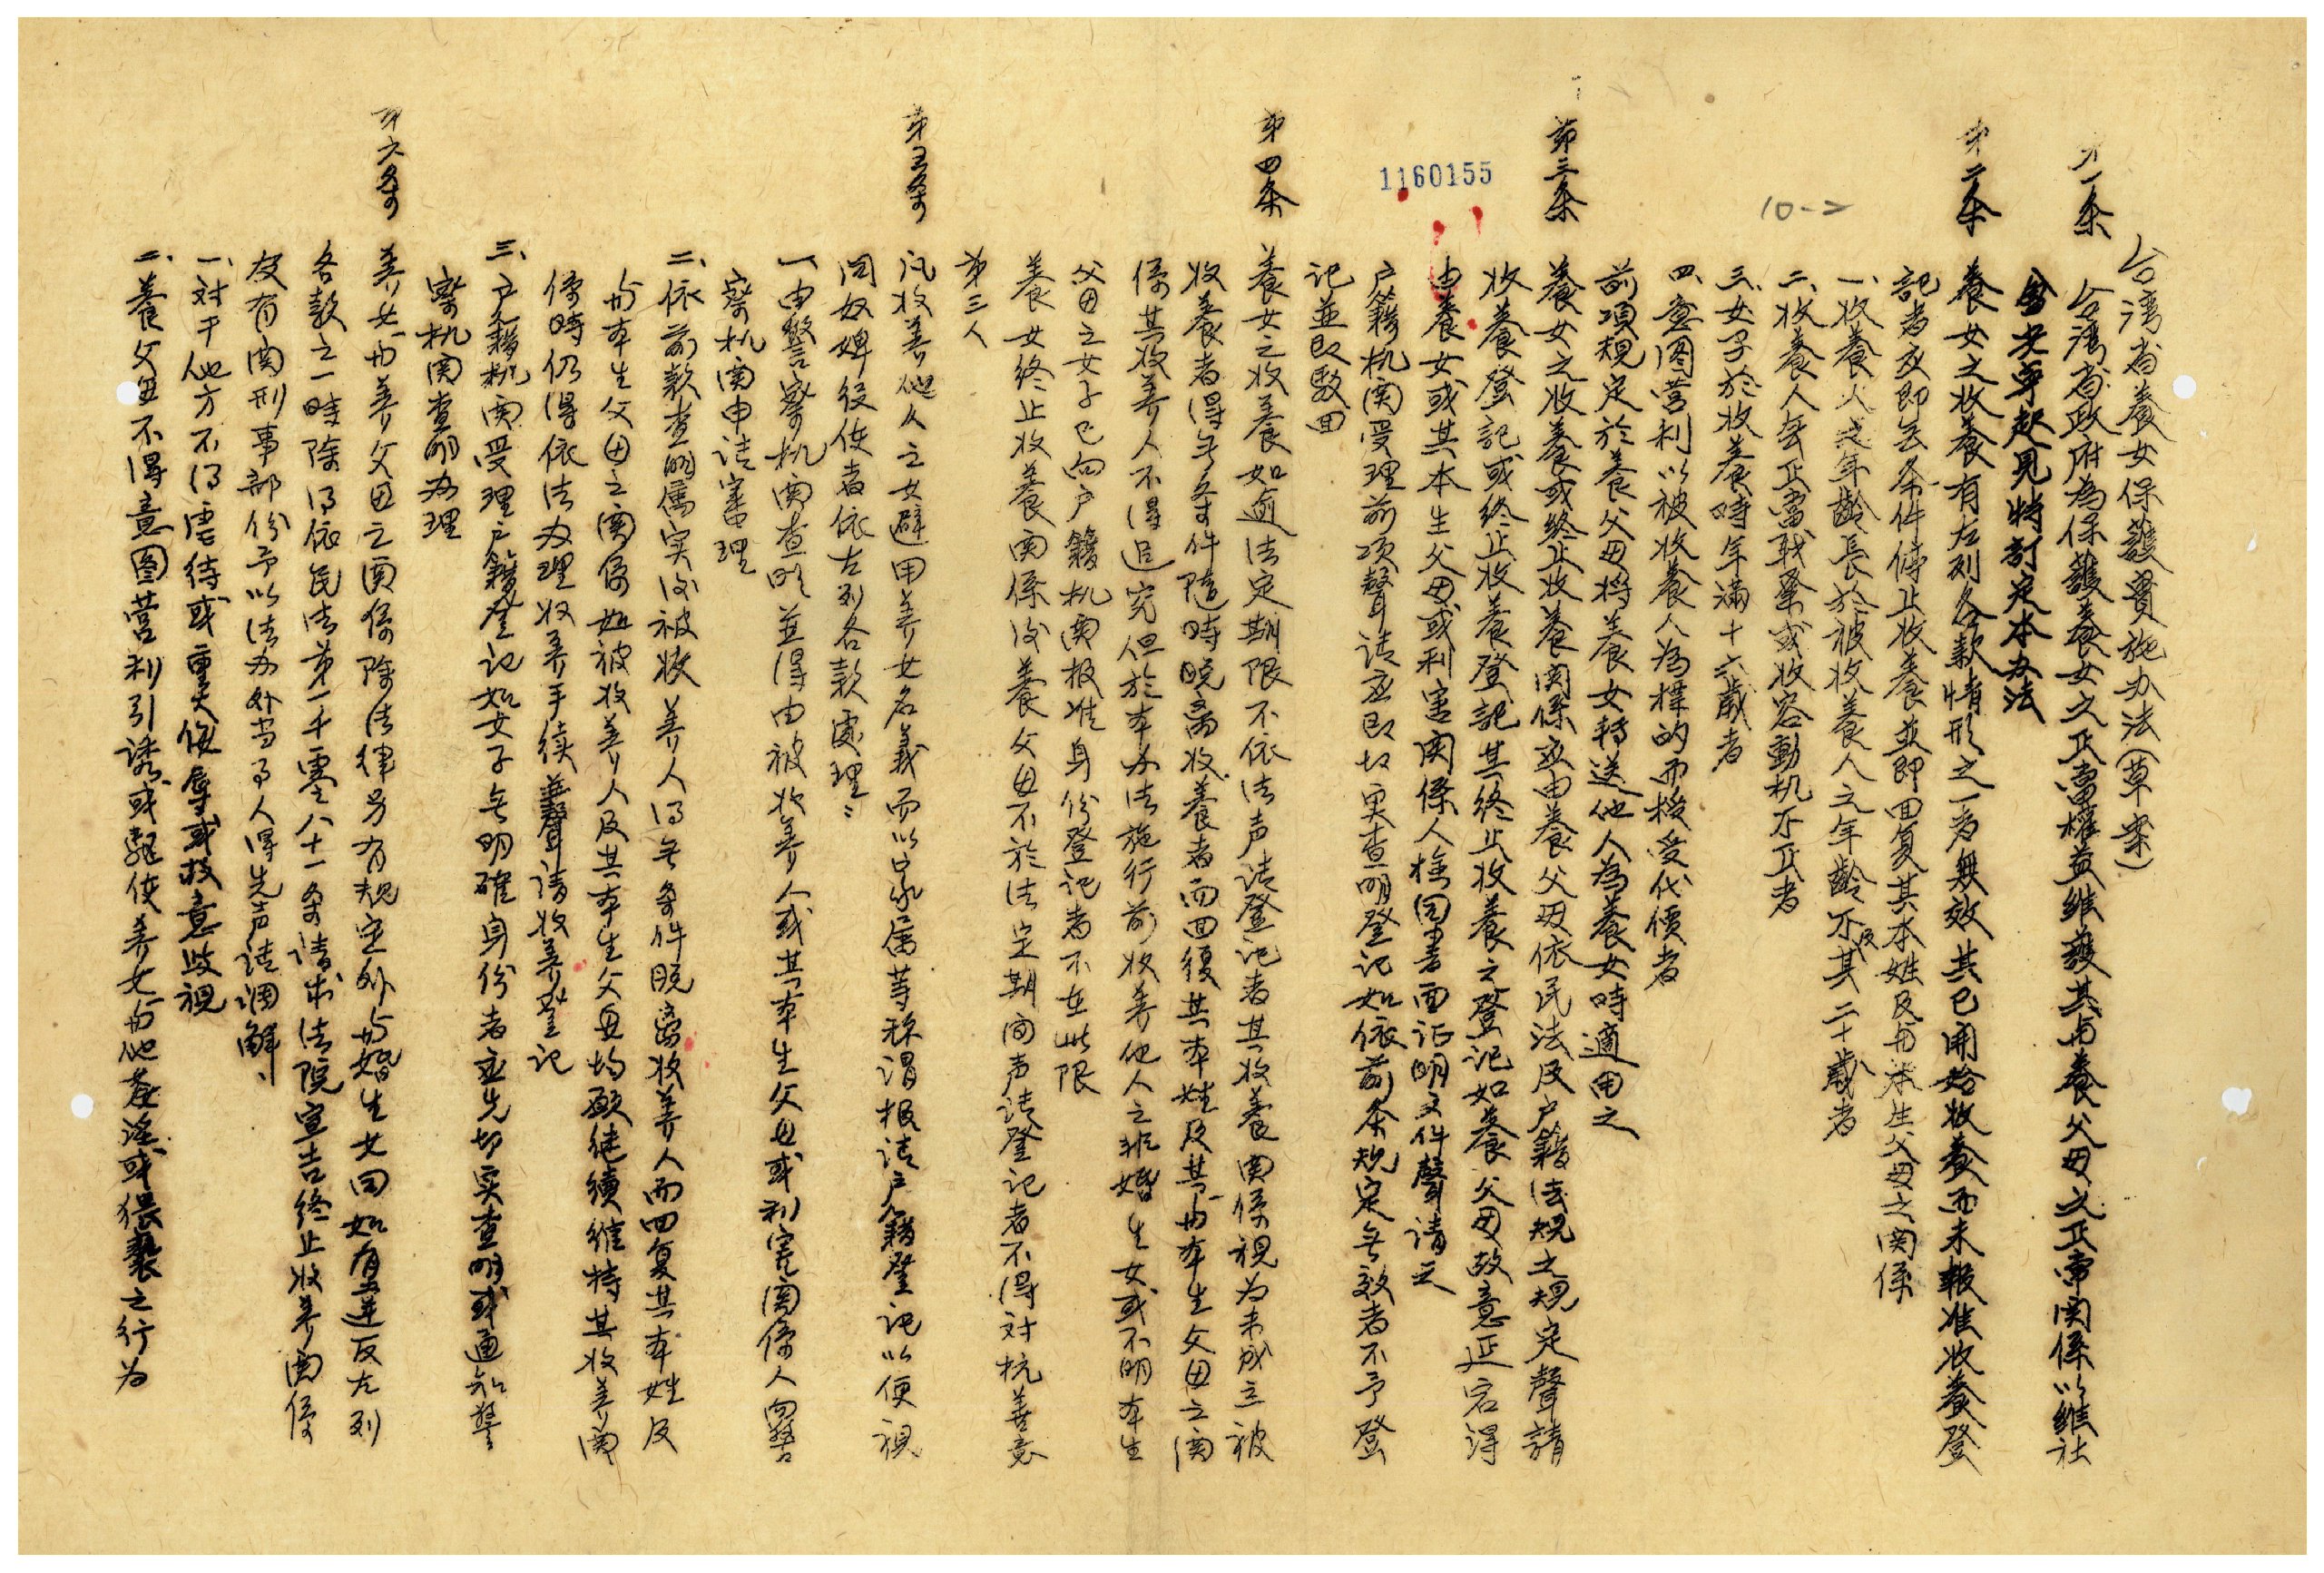 台湾省養女保護實施办法(草案)
第一条 台湾省政府為保護養女之正當權益維護其與養父母之正常関係以維社
會安寧起見特訂定本办法
第二条 養女之收養有左列各款情形之一者無效其已開始收養而未報准收養登
記者应即無条件停止收養並即回复其本姓及与本生父母之関係
一、收養人之年齡長於被收養人之年齡不及其二十歲者
二、收養人無正當职業或收容動机不正者
三、女子於收養時年滿十六歲者
四、意图营利以被收養人為標的而接受代價者
前項規定於養父母将養女轉送他人為養女時適用之
第三条 養女之收養或終止收養関係应由養父母依民法及户籍法規之規定聲請
收養登記或終止收養登記其終止收養之登記如養父母故意延宕得
由養女或其本生父母或利害関係人檢同書面证明文件聲请之
户籍机関受理前项聲请应即切实查明登记如依前条规定無效者不予登
记並即駁回
1160155
10-2
第四条 養女之收養如逾法定期限不依法声请登记者其收養関係視为未成立被
收養者得無条件隨時脱离收養者而回復其本姓及其与本生父母之関
係其收养人不得追究但於本办法施行前收养他人之非婚生女或不明本生
父母之女子已向户籍机関报准身份登记者不在此限
養女终止收養関係後養父母不於法定期间声请登记者不得对抗善意
第三人
第五条 凡收养他人之女避用养女名義而以家属等称谓报请户籍登记以便視
同奴婢役使者依左列各款處理:
一、由警察机関查明並得由被收养人或其本生父母或利害関係人向警
察机関申请審理
二、依前款查明属实後被收养人得無条件脱离收养人而回复其本姓及
与本生父母之関係如被收养人及其本生父母均願继續維持其收养関
係時仍得依法办理收养手续並聲请收养登记
三、户籍机関受理户籍登记如女子無明確身份者应先切实查明或通知警
察机関查明办理
第六条 养女与养父母之関係除法律另有規定外与婚生女同如有违反左列
各款之一時除得依民法第一千零八十一条请求法院宣告終止收养関係
及有関刑事部份予以法办外当事人得先声请调解:
一、対于他方不得虐待或重大侮辱或故意歧視
二、養父母不得意图营利引誘或驅使养女与他人姦淫或猥褻之行为